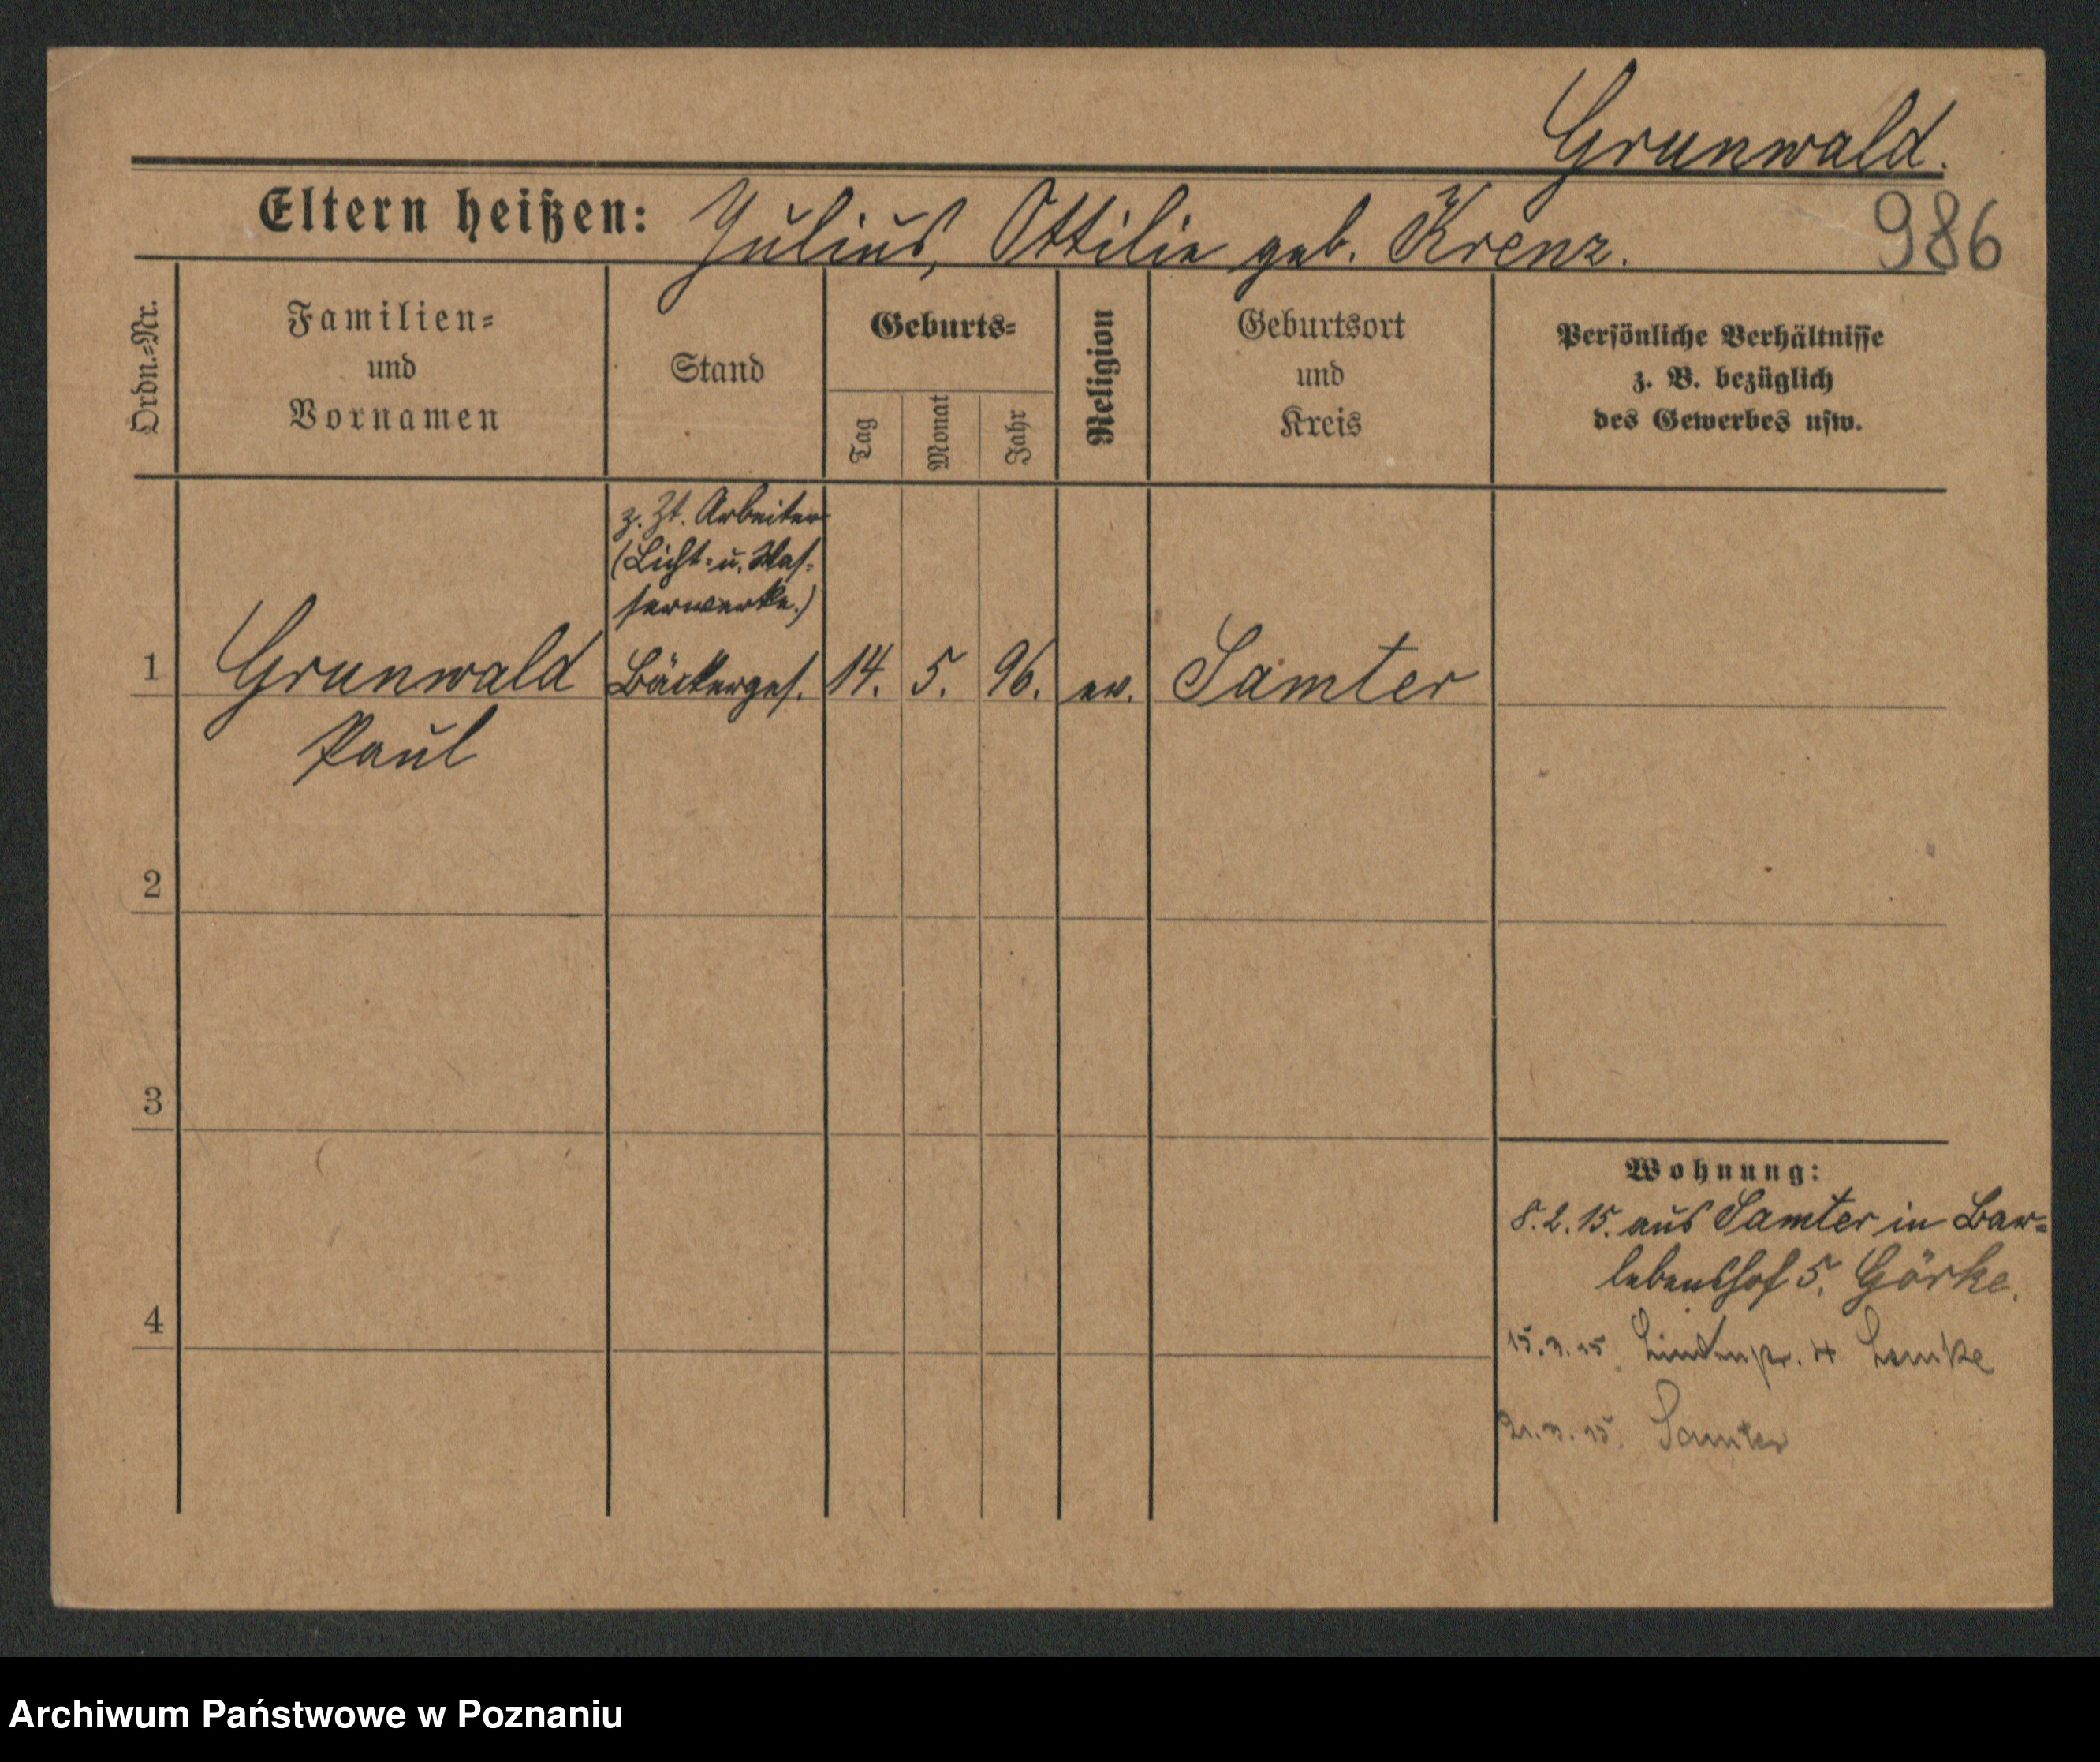 Grunwald.
Eltern heißen: Julius, Ottilie geb. Krenz.
986
Ordn.=Nr.
Familien=
und
Vornamen
Stand
Geburts=
Tag
Monat
Jahr
Religion
Geburtsort
und
Kreis
Persönliche Verhältnisse
z. B. bezüglich
des Gewerbes usw.
z. Zt. Arbeiter
(Licht= u. Was=
serwerke.)
1 Grunwald Bäckerges. 14. 5. 96. ev. Samter
Paul
2
3
4
Wohnung:
8.2.15. aus Samter in Bar=
lebenshof 5. Görke.
15.3.15. 4 Lemke
21.3.15. Samter
Archiwum Państwowe w Poznaniu